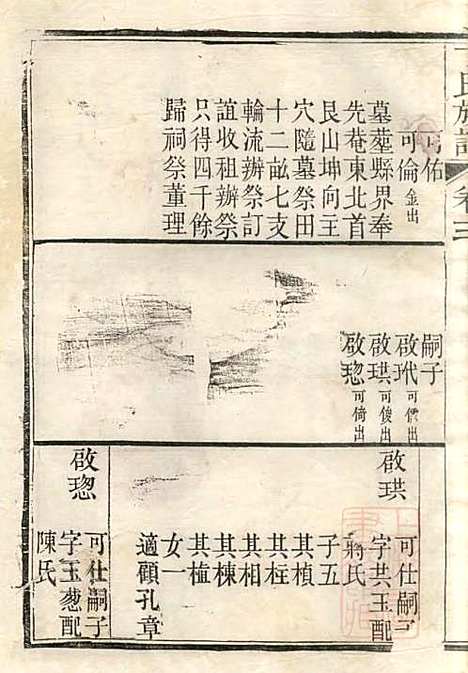 氏族譜
卷三
可佑
可倫金出
墓塟縣界奉
先菴東北首
艮山坤向主
穴隨墓祭田
十二畝七支
輪流辦祭訂
誼收租辦祭
只得四千餘
歸祠祭董理
嗣子
啟玳可僙出
啟珙可俊出
啟璁可倚出
啟珙
可仕嗣子
字共玉配
蔣氏
子五
其楨
其柱
其相
其棟
其植
女一
適顧孔章
啟璁
可仕嗣子
字玉蔥配
陳氏